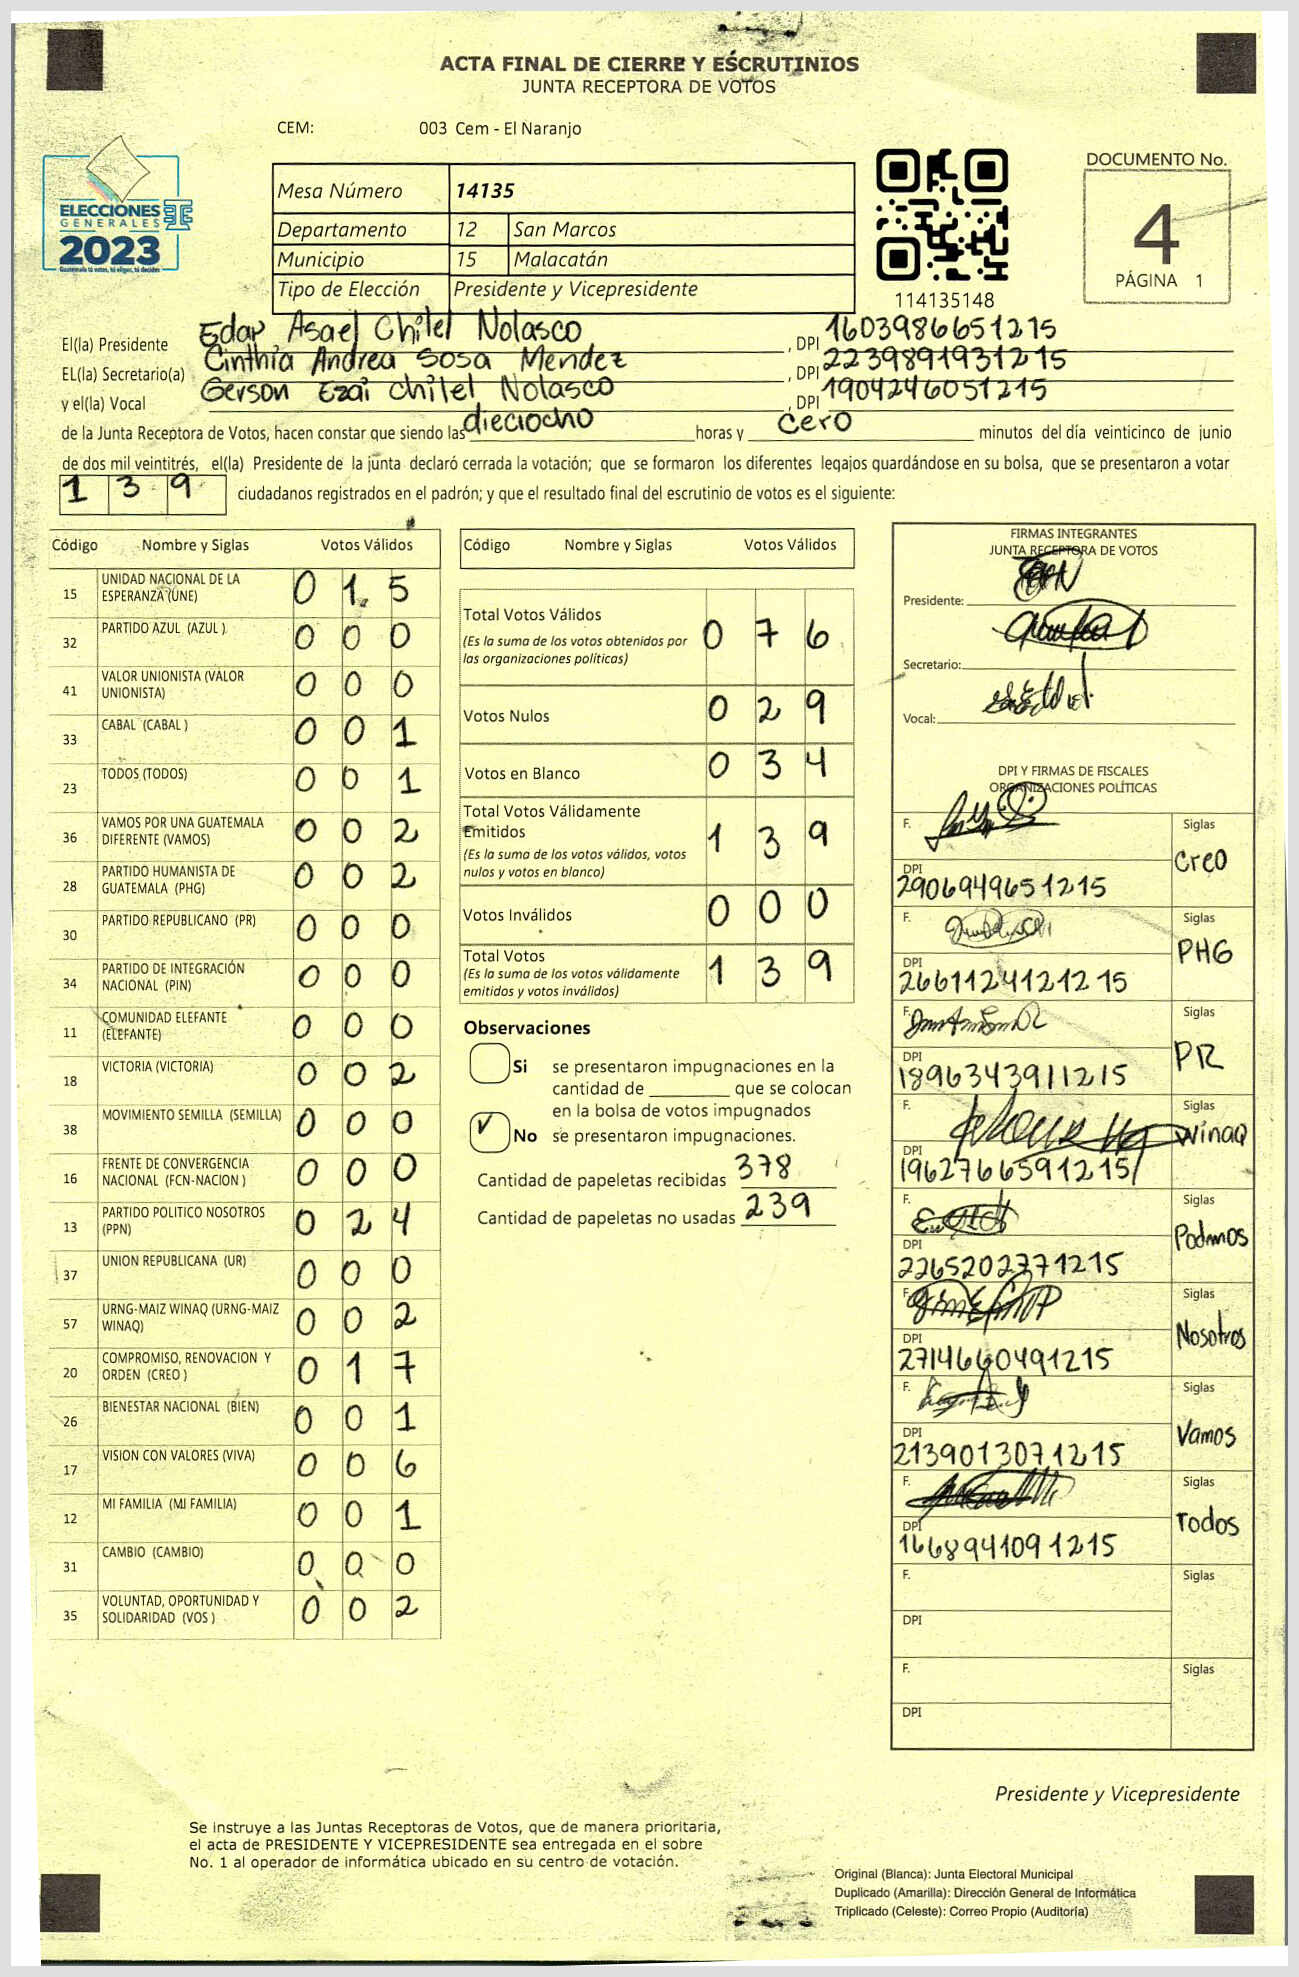 ACTA FINAL DE CIERRE Y ESCRUTINIOS
JUNTA RECEPTORA DE VOTOS
CEM: 003 Cem - El Naranjo
ELECCIONES
GENERALES
2023
Guatemala tú votas, tú eliges, tú decides
Mesa Número 14135
Departamento 12 San Marcos
Municipio 15 Malacatán
Tipo de Elección Presidente y Vicepresidente
114135148
DOCUMENTO No.
4
PÁGINA 1
El(la) Presidente Edar Asael Chilel Nolasco, DPI 1603986651215
EL(la) Secretario(a) Cinthia Andrea Sosa Mendez, DPI 2239891931215
y el(la) Vocal Gerson Ezai Chilel Nolasco, DPI 1904246051215
de la Junta Receptora de Votos, hacen constar que siendo las dieciocho horas y cero minutos del día veinticinco de junio
de dos mil veintitrés, el(la) Presidente de la junta declaró cerrada la votación; que se formaron los diferentes legajos guardándose en su bolsa, que se presentaron a votar
1 3 9 ciudadanos registrados en el padrón; y que el resultado final del escrutinio de votos es el siguiente:
Código Nombre y Siglas Votos Válidos
15 UNIDAD NACIONAL DE LA ESPERANZA (UNE) 0 1 5
32 PARTIDO AZUL (AZUL ) 0 0 0
41 VALOR UNIONISTA (VALOR UNIONISTA) 0 0 0
33 CABAL (CABAL ) 0 0 1
23 TODOS (TODOS) 0 0 1
36 VAMOS POR UNA GUATEMALA DIFERENTE (VAMOS) 0 0 2
28 PARTIDO HUMANISTA DE GUATEMALA (PHG) 0 0 2
30 PARTIDO REPUBLICANO (PR) 0 0 0
34 PARTIDO DE INTEGRACIÓN NACIONAL (PIN) 0 0 0
11 COMUNIDAD ELEFANTE (ELEFANTE) 0 0 0
18 VICTORIA (VICTORIA) 0 0 2
38 MOVIMIENTO SEMILLA (SEMILLA) 0 0 0
16 FRENTE DE CONVERGENCIA NACIONAL (FCN-NACION ) 0 0 0
13 PARTIDO POLITICO NOSOTROS (PPN) 0 2 4
37 UNION REPUBLICANA (UR) 0 0 0
57 URNG-MAIZ WINAQ (URNG-MAIZ WINAQ) 0 0 2
20 COMPROMISO, RENOVACION Y ORDEN (CREO ) 0 1 7
26 BIENESTAR NACIONAL (BIEN) 0 0 1
17 VISION CON VALORES (VIVA) 0 0 6
12 MI FAMILIA (MI FAMILIA) 0 0 1
31 CAMBIO (CAMBIO) 0 0 0
35 VOLUNTAD, OPORTUNIDAD Y SOLIDARIDAD (VOS ) 0 0 2
Código Nombre y Siglas Votos Válidos
Total Votos Válidos 0 7 6
(Es la suma de los votos obtenidos por
las organizaciones politicas)
Votos Nulos 0 2 9
Votos en Blanco 0 3 4
Total Votos Válidamente
Emitidos 1 3 9
(Es la suma de los votos válidos, votos
nulos y votos en blanco)
Votos Inválidos 0 0 0
Total Votos 1 3 9
(Es la suma de los votos válidamente
emitidos y votos inválidos)
Observaciones
Si se presentaron impugnaciones en la
cantidad de ________ que se colocan
en la bolsa de votos impugnados
✓ No se presentaron impugnaciones.
Cantidad de papeletas recibidas 378
Cantidad de papeletas no usadas 239
FIRMAS INTEGRANTES
JUNTA RECEPTORA DE VOTOS
Presidente:
Secretario:
Vocal:
DPI Y FIRMAS DE FISCALES
ORGANIZACIONES POLÍTICAS
F. Siglas Creo
DPI 2906949651215
F. Siglas PHG
DPI 2661124121215
F. Siglas PR
DPI 1896343911215
F. Siglas Winaq
DPI 1962766591215
F. Siglas Podmos
DPI 2265202771215
F. Siglas Nosotros
DPI 2714660491215
F. Siglas Vamos
DPI 2139013071215
F. Siglas Todos
DPI 1668941091215
F. Siglas
DPI
F. Siglas
DPI
Presidente y Vicepresidente
Se instruye a las Juntas Receptoras de Votos, que de manera prioritaria,
el acta de PRESIDENTE Y VICEPRESIDENTE sea entregada en el sobre
No. 1 al operador de informática ubicado en su centro de votación.
Original (Blanca): Junta Electoral Municipal
Duplicado (Amarilla): Dirección General de Informática
Triplicado (Celeste): Correo Propio (Auditoría)